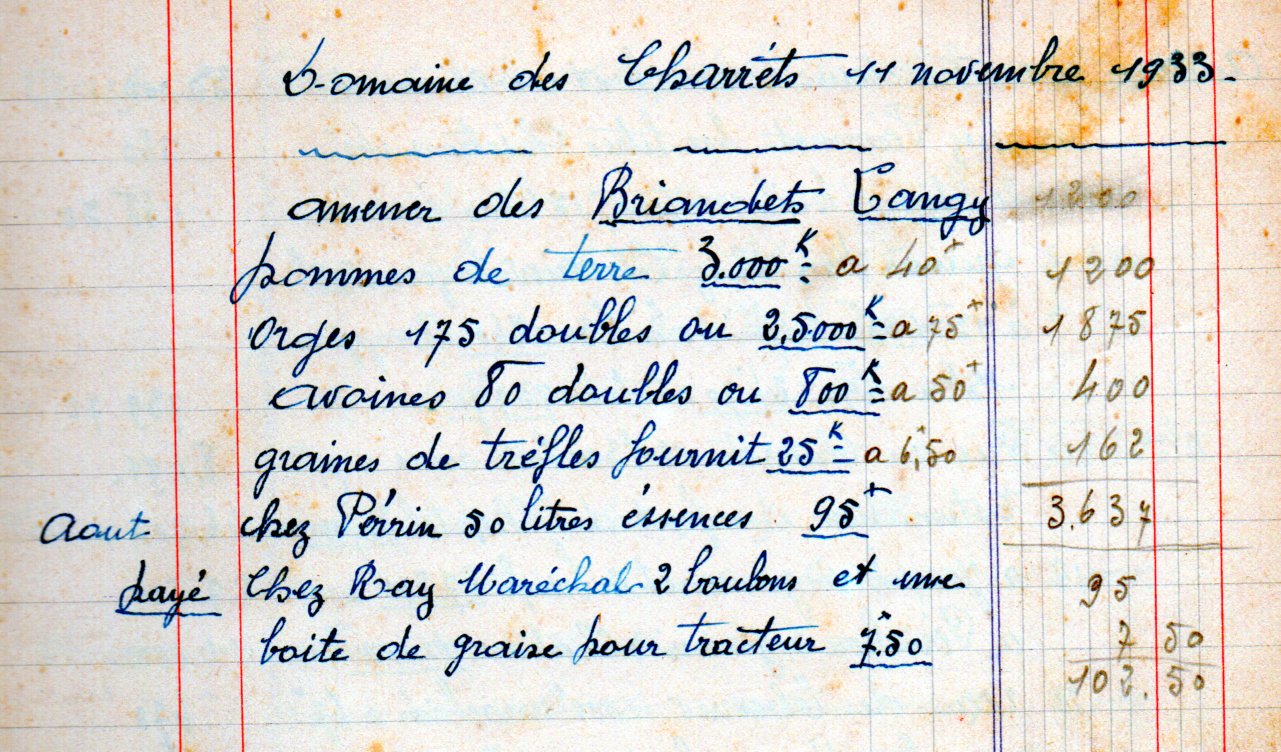 Domaine des Charréts 11 novembre 1933.
amener des Briandets Tangy 1200
pommes de terre 3.000K a 40+ 1200
Orges 175 doubles ou 2,5000K a 75+ 1875
avoines 80 doubles ou 800K a 50+ 400
graines de tréfles fournit 25K a 6,50 162
Aout chez Pérrin 50 litres éssences 95+ 3.637
payé Chez Ray Maréchal 2 boulons et une 95
boite de graise pour tracteur 7.50 7 50
102.50